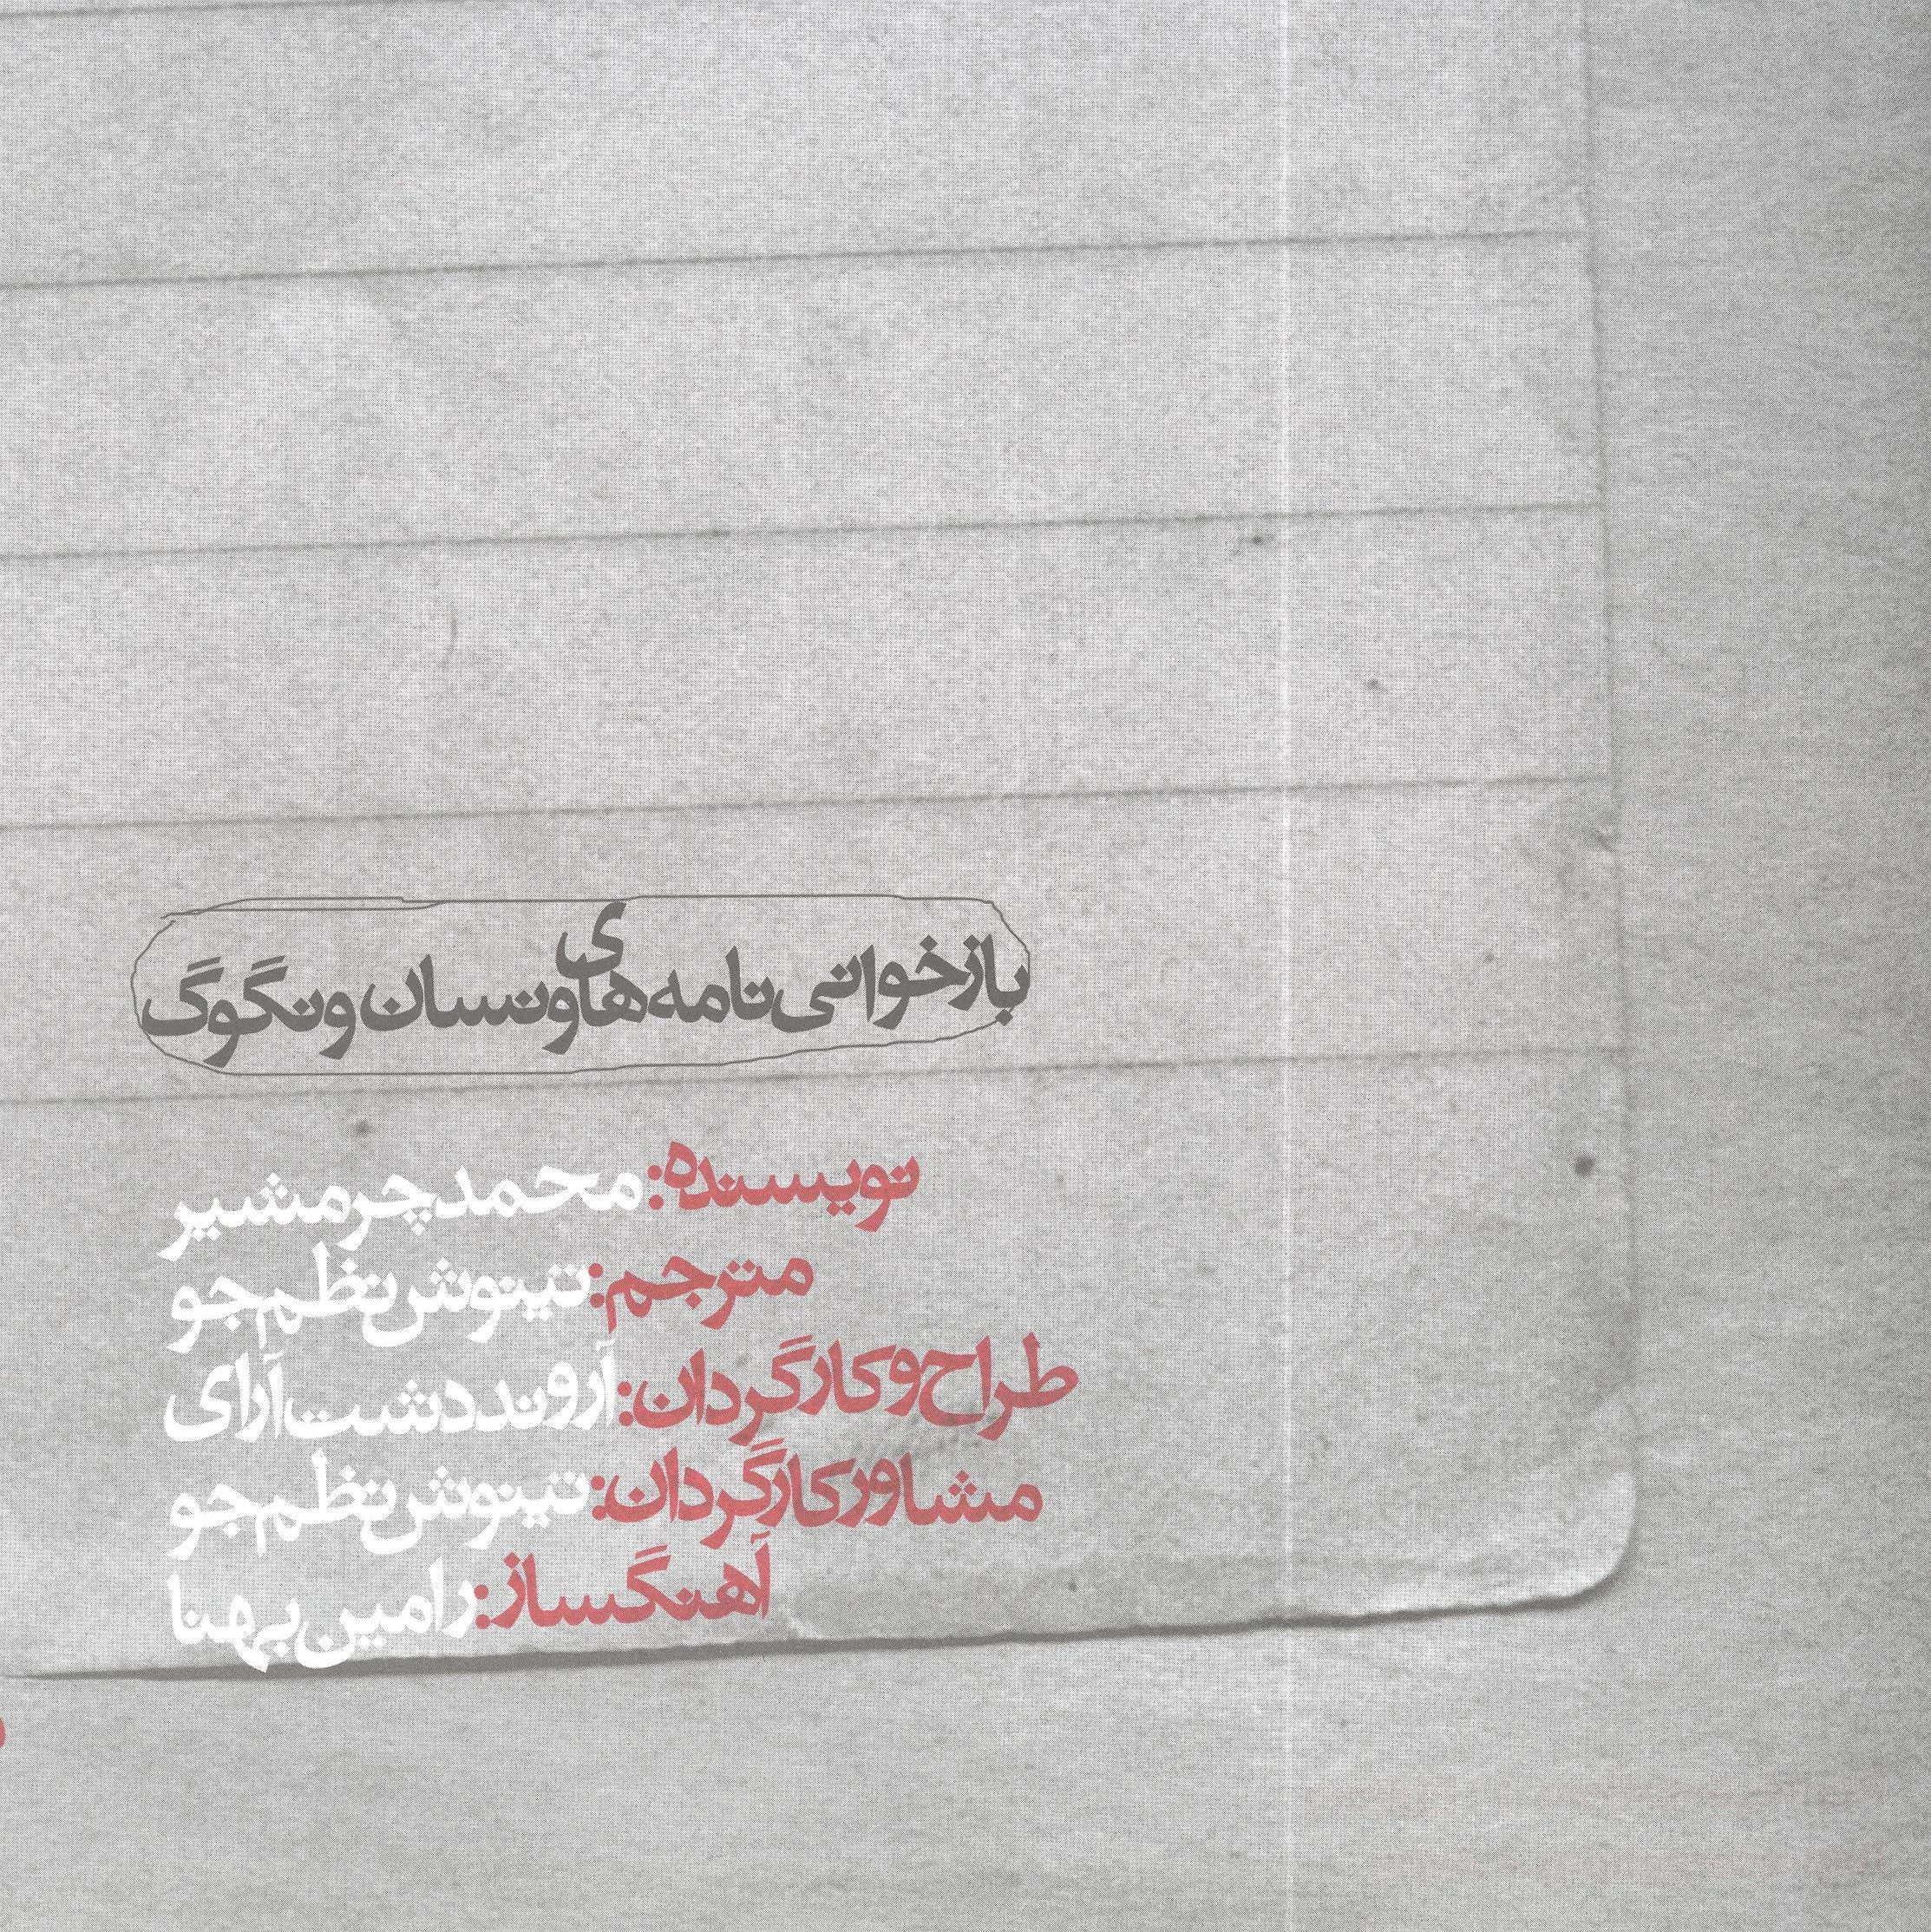 بازخوانی نامه های ونسان ونگوگ
نویسنده: محمد چرمشیر
مترجم: تینوش نظم جو
طراح و کارگردان: آروند دشت آرای
مشاور کارگردان: تینوش نظم جو
آهنگساز: رامین بهنا